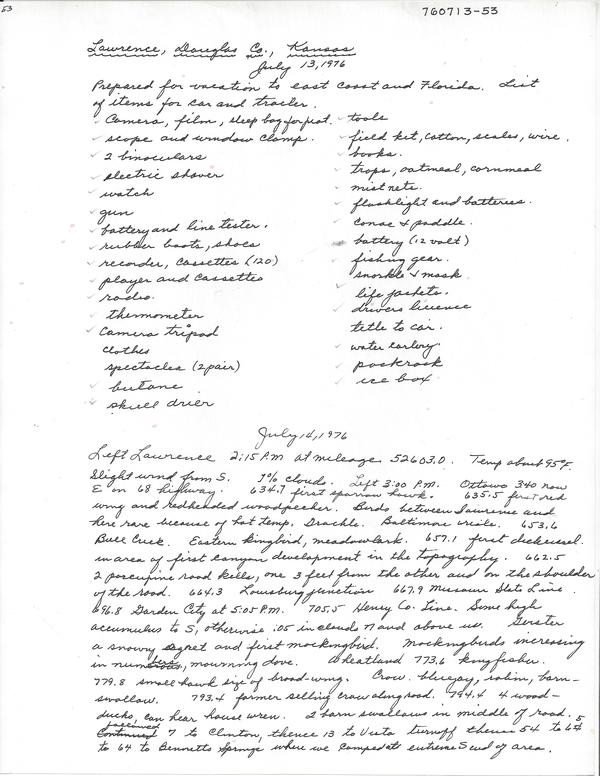 53
760713-53
Lawrence, Douglas Co., Kansas
July 13, 1976
Prepared for vacation to east coast and Florida. List
of items for car and trailer.
✓ Camera, film, sleep bag for pat.
✓ scope and window clamp.
✓ 2 binoculars
✓ electric shaver
✓ watch
✓ gun
✓ battery and line tester.
✓ rubber boots, shoes
✓ recorder, cassettes (120)
✓ player and cassettes
✓ radio.
✓ thermometer
✓ Camera tripod
clothes
spectacles (2 pair)
✓ butane
✓ skull drier
✓ tools
✓ field kit, cotton, scales, wire.
✓ books.
✓ traps, oatmeal, cornmeal
✓ mist nets.
✓ flashlight and batteries.
✓ canoe & paddle.
battery (12 volt)
✓ fishing gear.
snorkle & mask
✓ life jackets.
✓ drivers licence
title to car.
✓ water carboy.
✓ packrack
✓ ice box
July 14, 1976
Left Lawrence 2:15 P.M at mileage 52603.0. Temp about 95°F.
Slight wind from S. 1% clouds. Left 3:00 P.M. Ottawa 340 now
E on 68 highway. 634.7 first sparrow hawk. 635.5 first red
wing and redheaded woodpecker. Birds between Lawrence and
here rare because of hot temp. Grackle. Baltimore oriole. 653.6
Bull Creek. Eastern kingbird, meadowlark. 657.1 first dickcissel.
in area of first canyon development in the topography. 662.5
2 porcupine road kills, one 3 feet from the other and on the shoulder
of the road. 664.3 Louisburg junction 667.9 Missouri State Line.
696.8 Garden City at 5:05 P.M. 705.5 Henry Co. Line. Some high
accumulus to S, otherwise .05 in clouds N and above us.
a snowy egret and first mockingbird. Mockingbirds increasing
in numbers, mourning dove. Wheatland 773.6 kingfisher.
779.8 small hawk size of broad-wing. Crow. bluejay, robin, barn-
swallow. 793.4 farmer selling crow along road. 794.4 4 wood-
ducks, can hear house wren. 2 barn swallows in middle of road.
followed 7 to Clinton, thence 13 to Vista turnoff thence 54 to 64
to 64 to Bennetts Springs where we camped at extreme S end of area.